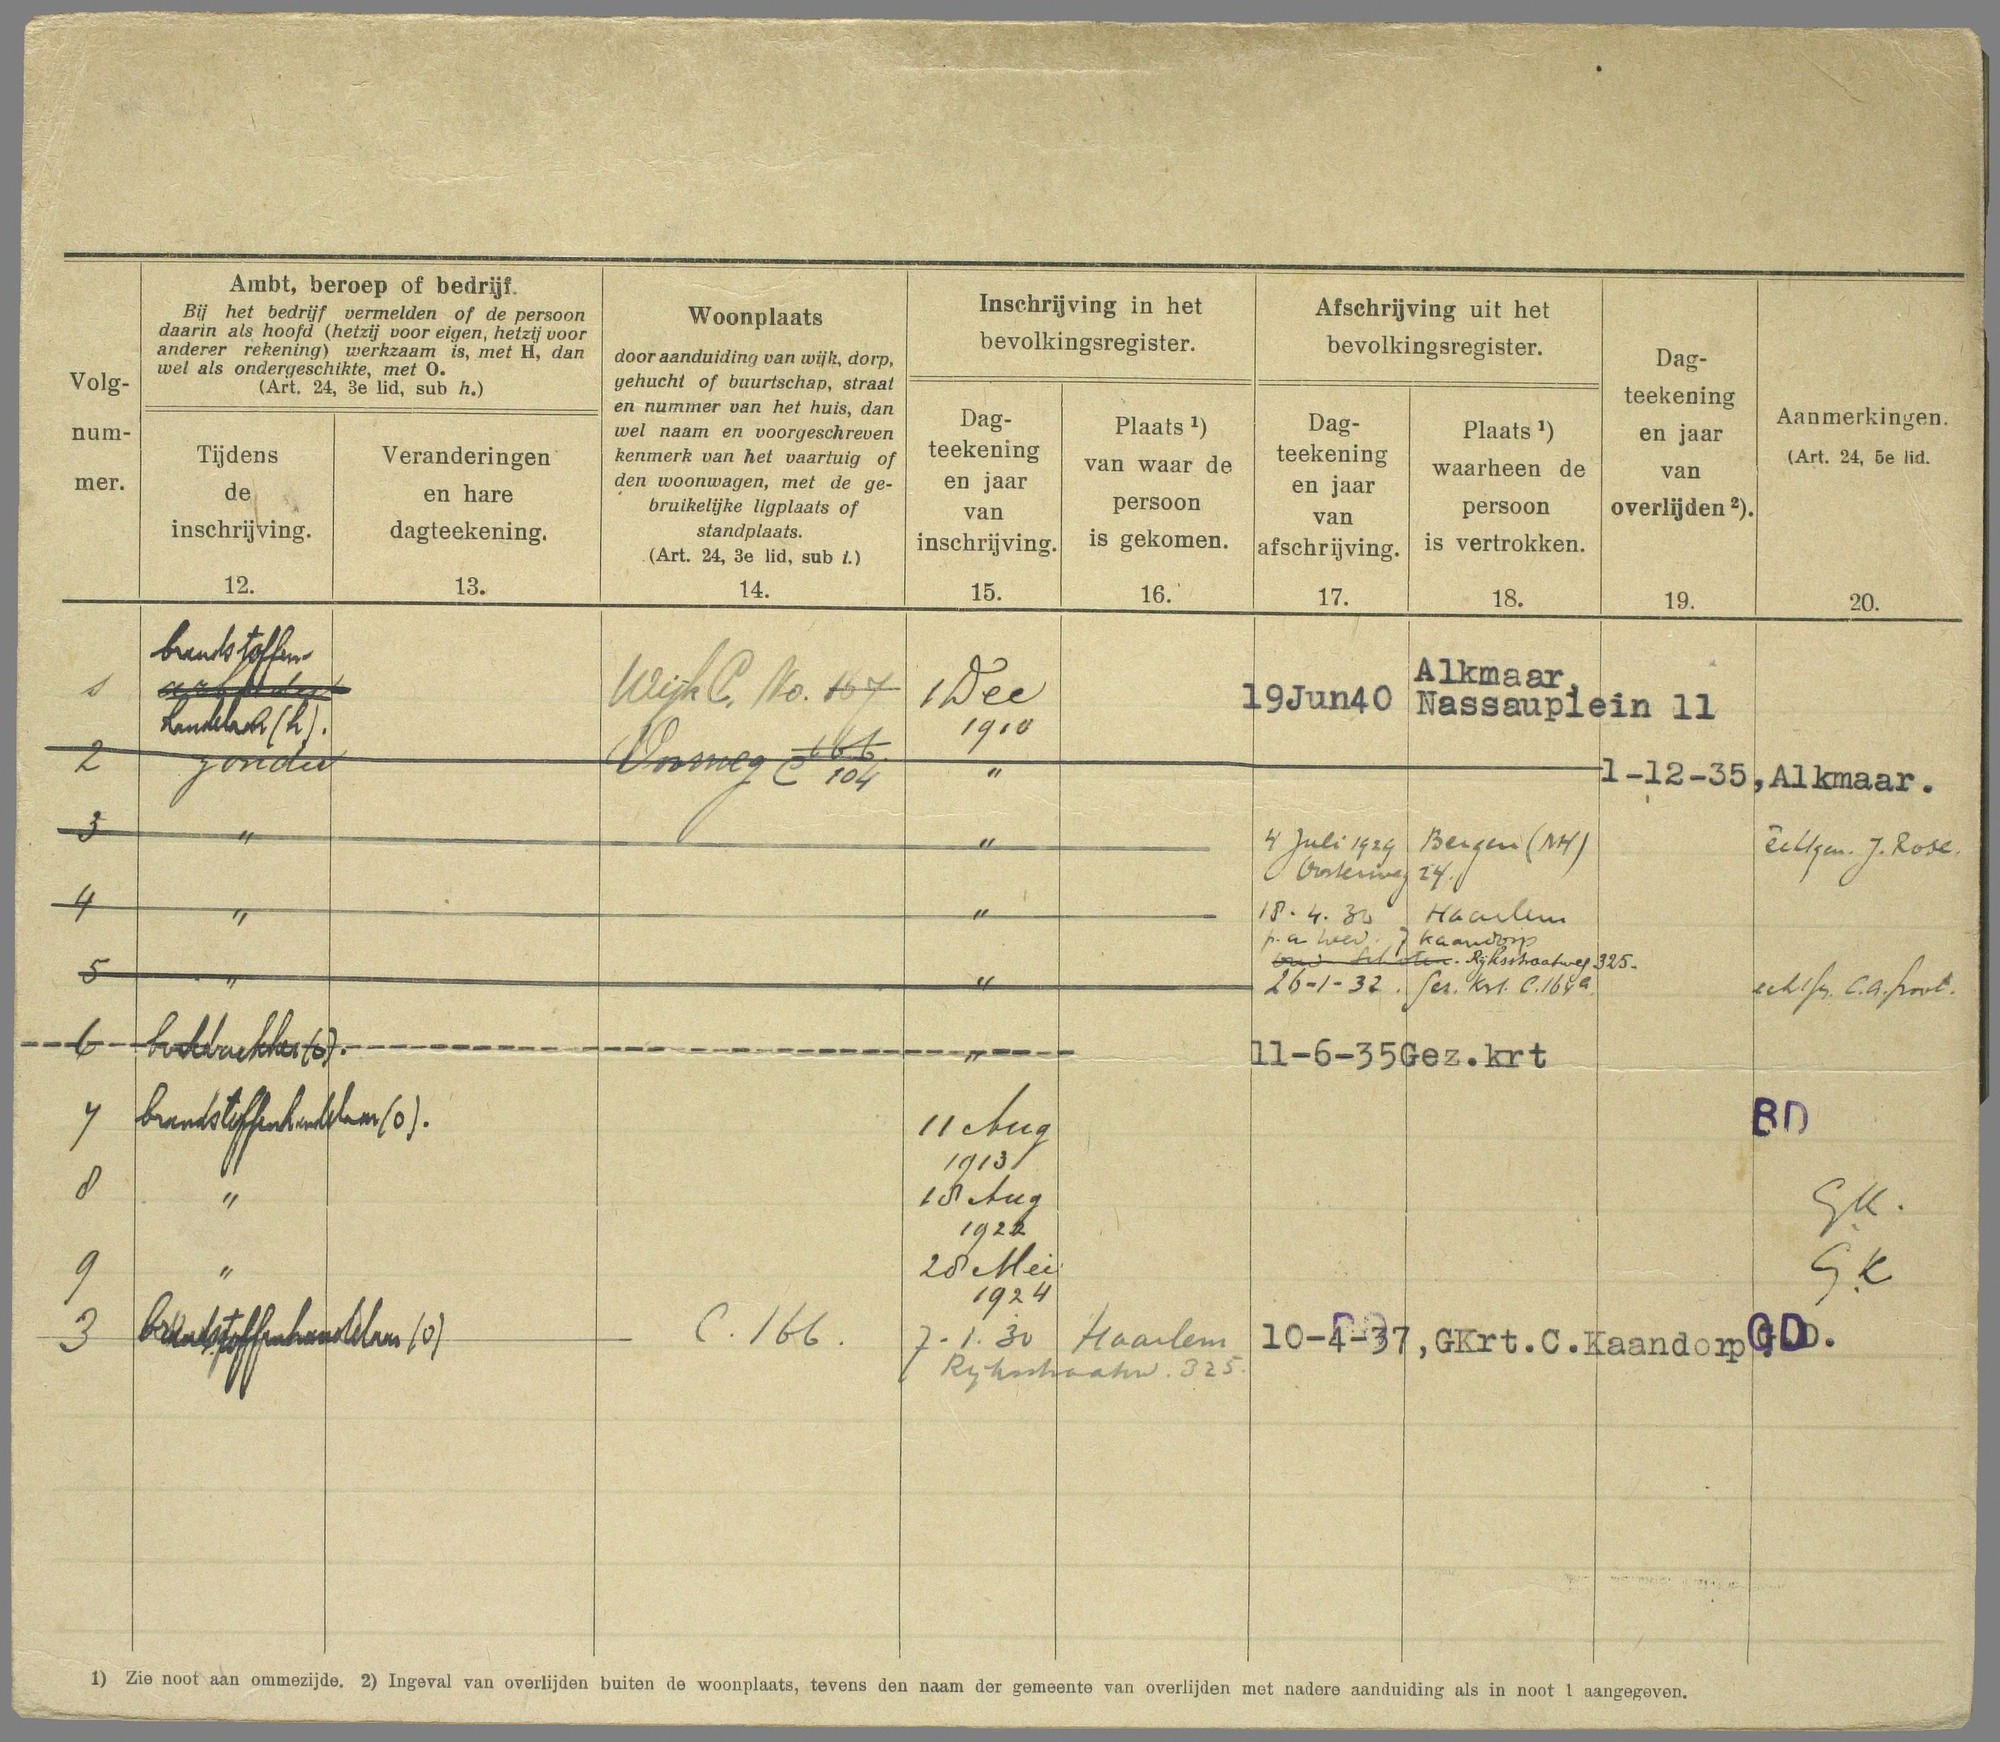 Ambt, beroep of bedrijf.
Bij het bedrijf vermelden of de persoon
daarin als hoofd (hetzij voor eigen, hetzij voor
anderer rekening) werkzaam is, met H, dan
wel als ondergeschikte, met O.
(Art. 24, 3e lid, sub h.)
Volg-
num-
mer.
Tijdens
de
inschrijving.
12.
Veranderingen
en hare
dagteekening.
13.
Woonplaats
door aanduiding van wijk, dorp,
gehucht of buurtschap, straat
en nummer van het huis, dan
wel naam en voorgeschreven
kenmerk van het vaartuig of
den woonwagen, met de ge-
bruikelijke ligplaats of
standplaats.
(Art. 24, 3e lid, sub i.)
14.
Inschrijving in het
bevolkingsregister.
Dag-
teekening
en jaar
van
inschrijving.
15.
Plaats 1)
van waar de
persoon
is gekomen.
16.
Afschrijving uit het
bevolkingsregister.
Dag-
teekening
en jaar
van
afschrijving.
17.
Plaats 1)
waarheen de
persoon
is vertrokken.
18.
Dag-
teekening
en jaar
van
overlijden 2).
19.
Aanmerkingen.
(Art. 24, 5e lid.
20.
brandstoffen-
1 Wijk C. No. 167 1 Dec 19Jun40 Alkmaar,
handelaar (h). 1910 Nassauplein 11
2 zonder C 166 "
104
1-12-35, Alkmaar.
3 " " 4 Juli 1929 Bergen (NH) echtgen. J. Rose.
Oosterweg 24.
4 " " 18.4.30 Haarlem
p.a. wed. J Kaandorp
Rijksstraatweg 325.
5 " " 26-1-32. Gez. Krt. C.164a
6 (o). " 11-6-35 Gez.krt
7 brandstoffenhandelaar (o). 11 Aug BD
1913
8 " 18 Aug G.K.
1922
9 " 28 Mei G.K
1924
3 brandstoffenhandelaar (o) C. 166. 7-1.30 Haarlem 10-4-37, GKrt.C.Kaandorp G.D.
Rijksstraatw. 325.
1) Zie noot aan ommezijde. 2) Ingeval van overlijden buiten de woonplaats, tevens den naam der gemeente van overlijden met nadere aanduiding als in noot 1 aangegeven.